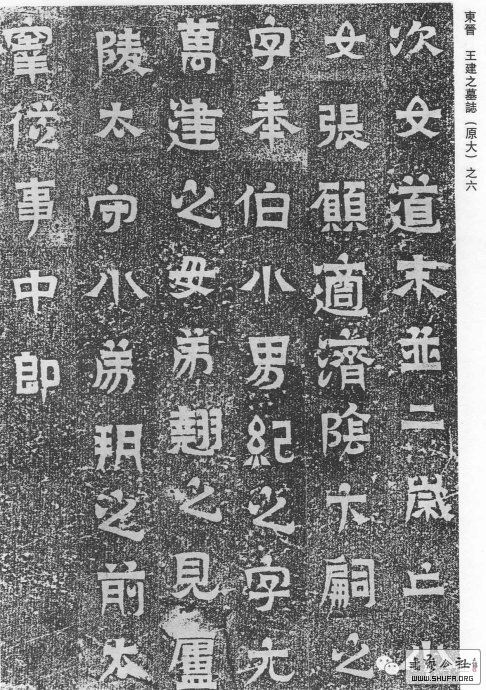 東晉 王建之墓誌（原大）之六
次女道末並二歲亡小
女張願適濟陰卞嗣之
字奉伯小男紀之字元
萬建之母弟翹之見廬
陵太守小弟朔之前太
宰從事中郎
公社
WWW.SHUFA.ORG